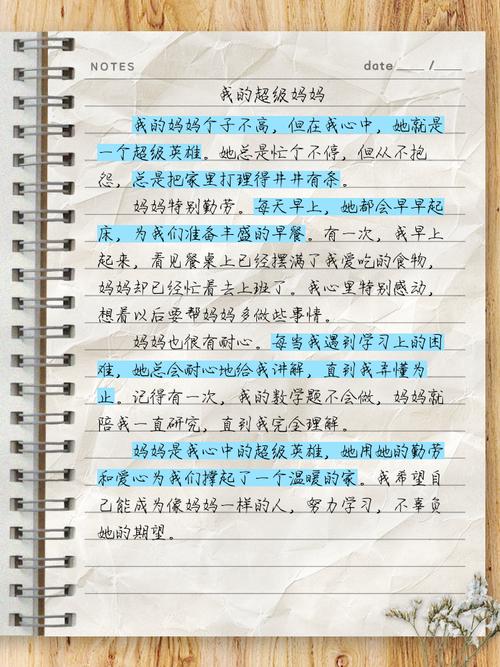 NOTES date /
我的超级妈妈
我的妈妈个子不高，但在我心中，她就是
一个超级英雄。她总是忙个不停，但从不抱
怨，总是把家里打理得井井有条。
妈妈特别勤劳。每天早上，她都会早早起
床，为我们准备丰盛的早餐。有一次，我早上
起来，看见餐桌上已经摆满了我爱吃的食物，
妈妈却已经忙着去上班了。我心里特别感动，
想着以后要帮妈妈多做些事情。
妈妈也很有耐心。每当我遇到学习上的困
难，她总会耐心地给我讲解，直到我弄懂为
止。记得有一次，我的数学题不会做，妈妈就
陪我一直研究，直到我完全理解。
妈妈是我心中的超级英雄，她用她的勤劳
和爱心为我们撑起了一个温暖的家。我希望自
己能成为像妈妈一样的人，努力学习，不辜负
她的期望。